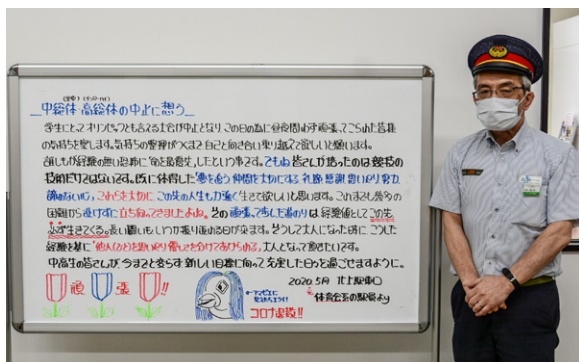 中総体 高総体の中止に想う
学生にとってオリンピックとも言える大会が中止となり、この日の為に昼夜問わず頑張ってこられた皆様
の気持ちを察します。気持ちの整理がつくまで自己と向き合い乗り越えて欲しいと願います。
誰しもが経験の無い恐怖に命を最優先したという事です。でもね 皆さんが培ったのは競技の
技術だけではないです。既に体得した「夢を追う 仲間を大切にする 礼節 感謝 思いやり 努力
諦めない心」これらを大切に この先の人生も力強く 生きて欲しいとも思います。これまでも幾多の
困難から 避けずに 立ち向ってきましたよね。その 頑張って歩した道のりは 経験値として この先
必ず生きてくる。長い闘いもいつか振り返れる日が来ます。そうして大人になった時に こうした
経験を基に "他人(ひと)を思いやり 優しさを分けてあげられる" 大人となって頂きたいです。
中高生の皆さんが 今までと変らず 新しい目標に向って 充実した日々を過ごせますように。
2020.5月 北上駅東口
体育会系の駅員より
頑張!!
アマビエに
コロナ退散!!